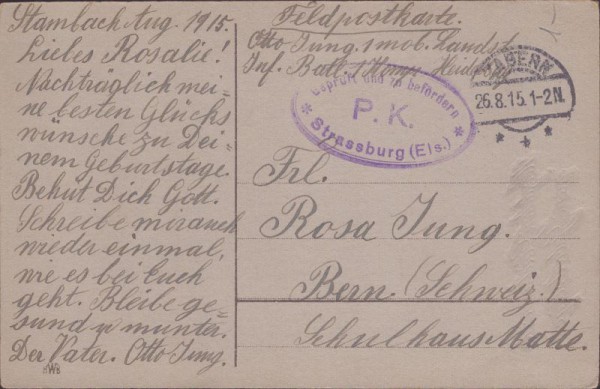 Stambach Aug. 1915.
Liebes Rosalie!
Nachträglich mei=
ne besten Glücks
wünsche zu Dei=
nem Geburtstage.
Behüt Dich Gott.
Schreibe mir auch
wieder einmal,
wie es bei Euch
geht. Bleibe ge=
sund u munter.
Der Vater. Otto Jung.
Feldpostkarte.
Otto Jung. 1 mob. Landst.
Inf. Batl. 1 Komp.
Geprüft und zu befördern
P. K.
Strassburg (Els.)
ZABERN
26.8.15.1-2N.
Frl.
Rosa Jung.
Bern. (Schweiz.)
Schulhaus Matte.